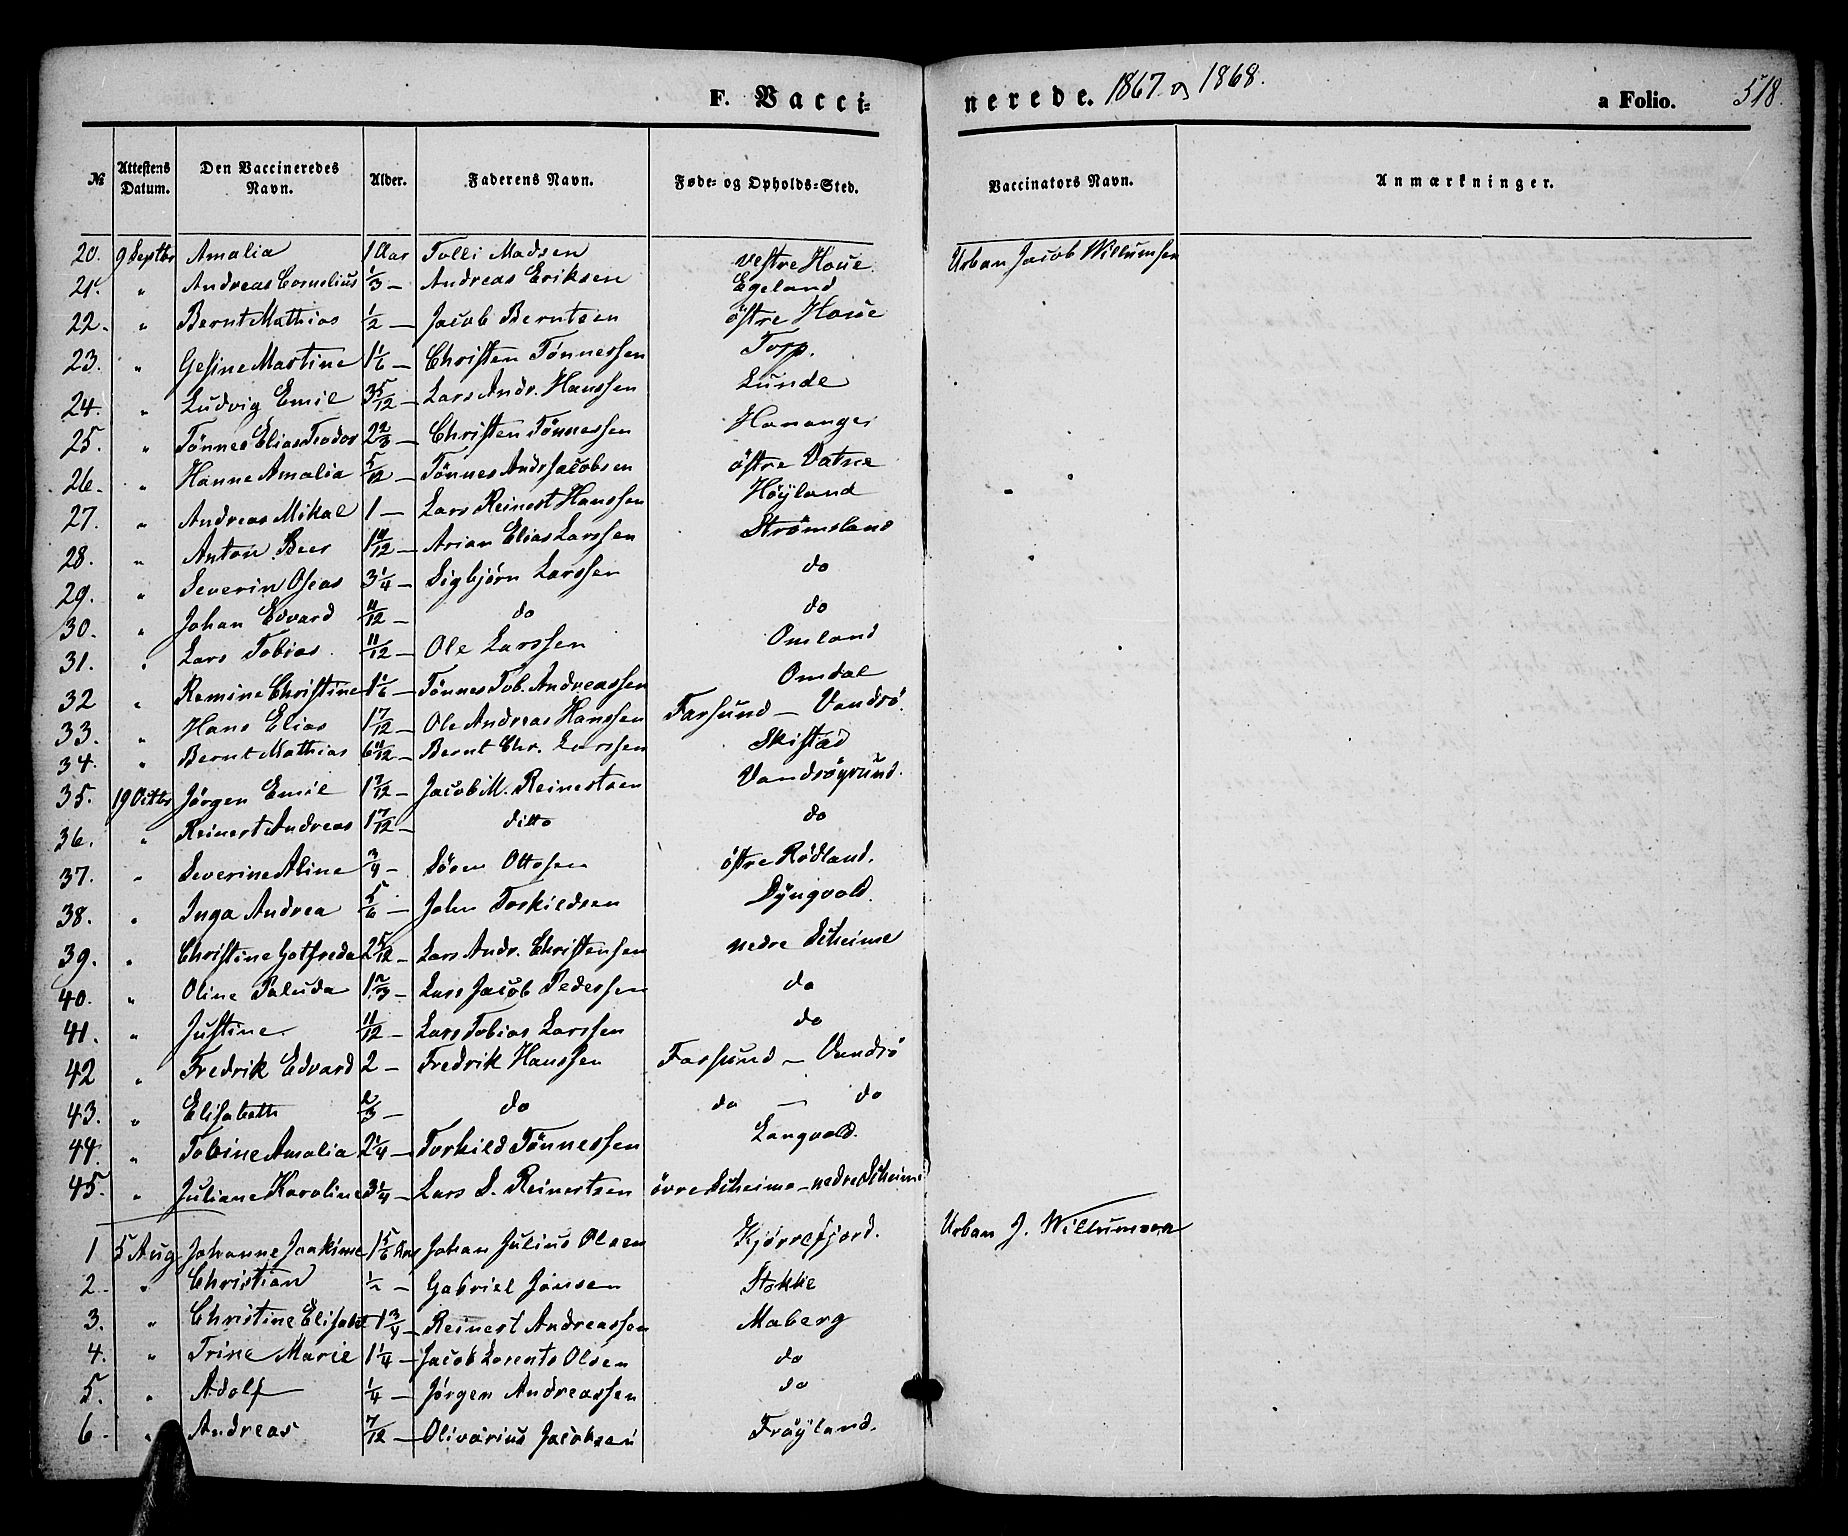 F. Vacci= nerede. 1867 og 1868. a Folio. 518.
№ Attestens Datum. Den Vaccineredes Navn. Alder. Faderens Navn. Føde- og Opholds-Sted. Vaccinators Navn. Anmærkninger.
20. 9 Septbr Amalia 1 Aar Tolli Madsen vestre Houe. Urban Jacob Willumsen
21. " Andreas Cornelius 1/3 — Andreas Eriksen Egeland
22. " Bernt Mathias 1/2 — Jacob Berntsen östre Houe
23. " Gesine Martine 1 1/6 — Christen Tönnessen Torp.
24. " Ludvig Emil 3 5/12 — Lars Andr. Hanssen Lunde
25. " Tönnes Elias Teodor 2 2/3 — Christen Tönnessen Hananger
26. " Hanne Amalia 5/12 — Tönnes Andr Jacobsen östre Vatne
27. " Andreas Mikal 1 — Lars Reinert Hanssen Höyland
28. " Anton Beer 1 10/12 — Arian Elias Larssen Strømsland
29. " Severin Oseas 3 1/4 — Sigbjörn Larssen do
30. " Johan Edvard 11/12 — do do
31. " Lars Tobias. 11/12 — Ole Larssen Omland
32 " Remine Christine 1 1/6 — Tönnes Tob. Andreassen Omdal
33. " Hans Elias 1 7/12 — Ole Andreas Hanssen Farsund — Vandsö.
34. " Bernt Mathias 6 11/12 — Bernt Chr. Larssen Skistad
35. 19 Octbr Jørgen Emil 1 7/12 — Jacob M. Reinertsen Vandsögrund.
36. " Reinert Andreas 1 7/12 — ditto do
37. " Severine Aline 3/4 — Sören Ottosen östre Rödland.
38. " Inga Andrea 5/6 — John Torkildsen Dyngvold.
39. " Christine Gotfreda 2 5/12 — Lars Andr. Christensen nedre Skeime
40. " Oline Paluda 1 2/3 — Lars Jacob Pederssen do
41. " Justine 11/12 — Lars Tobias Larssen do
42 " Fredrik Edvard 2 — Fredrik Hanssen Farsund — Vandsö
43. " Elisabeth 2/3 — do do — do
44. " Tobine Amalia 2 1/4 — Torkild Tönnessen Langvold.
45. " Juliane Karoline 3 1/4 — Lars S. Reinertsen övre Skeime — nedre Skeime
1 5 Aug Johanne Joakime 1 5/6 Aar Johan Julius Olsen Kjørrefjord. Urban J. Willumsen
2. " Christian 1/2 — Gabriel Jonsen Stokke
3. " Christine Elisabet 1 3/4 — Reinert Andreassen Maberg
4. " Trine Marie 1 1/4 — Jacob Lorents Olsen do
5. " Adolf 1/4 — Jørgen Andreassen do
6. " Andreas 7/12 — Olivarius Jacobsen Fröyland.